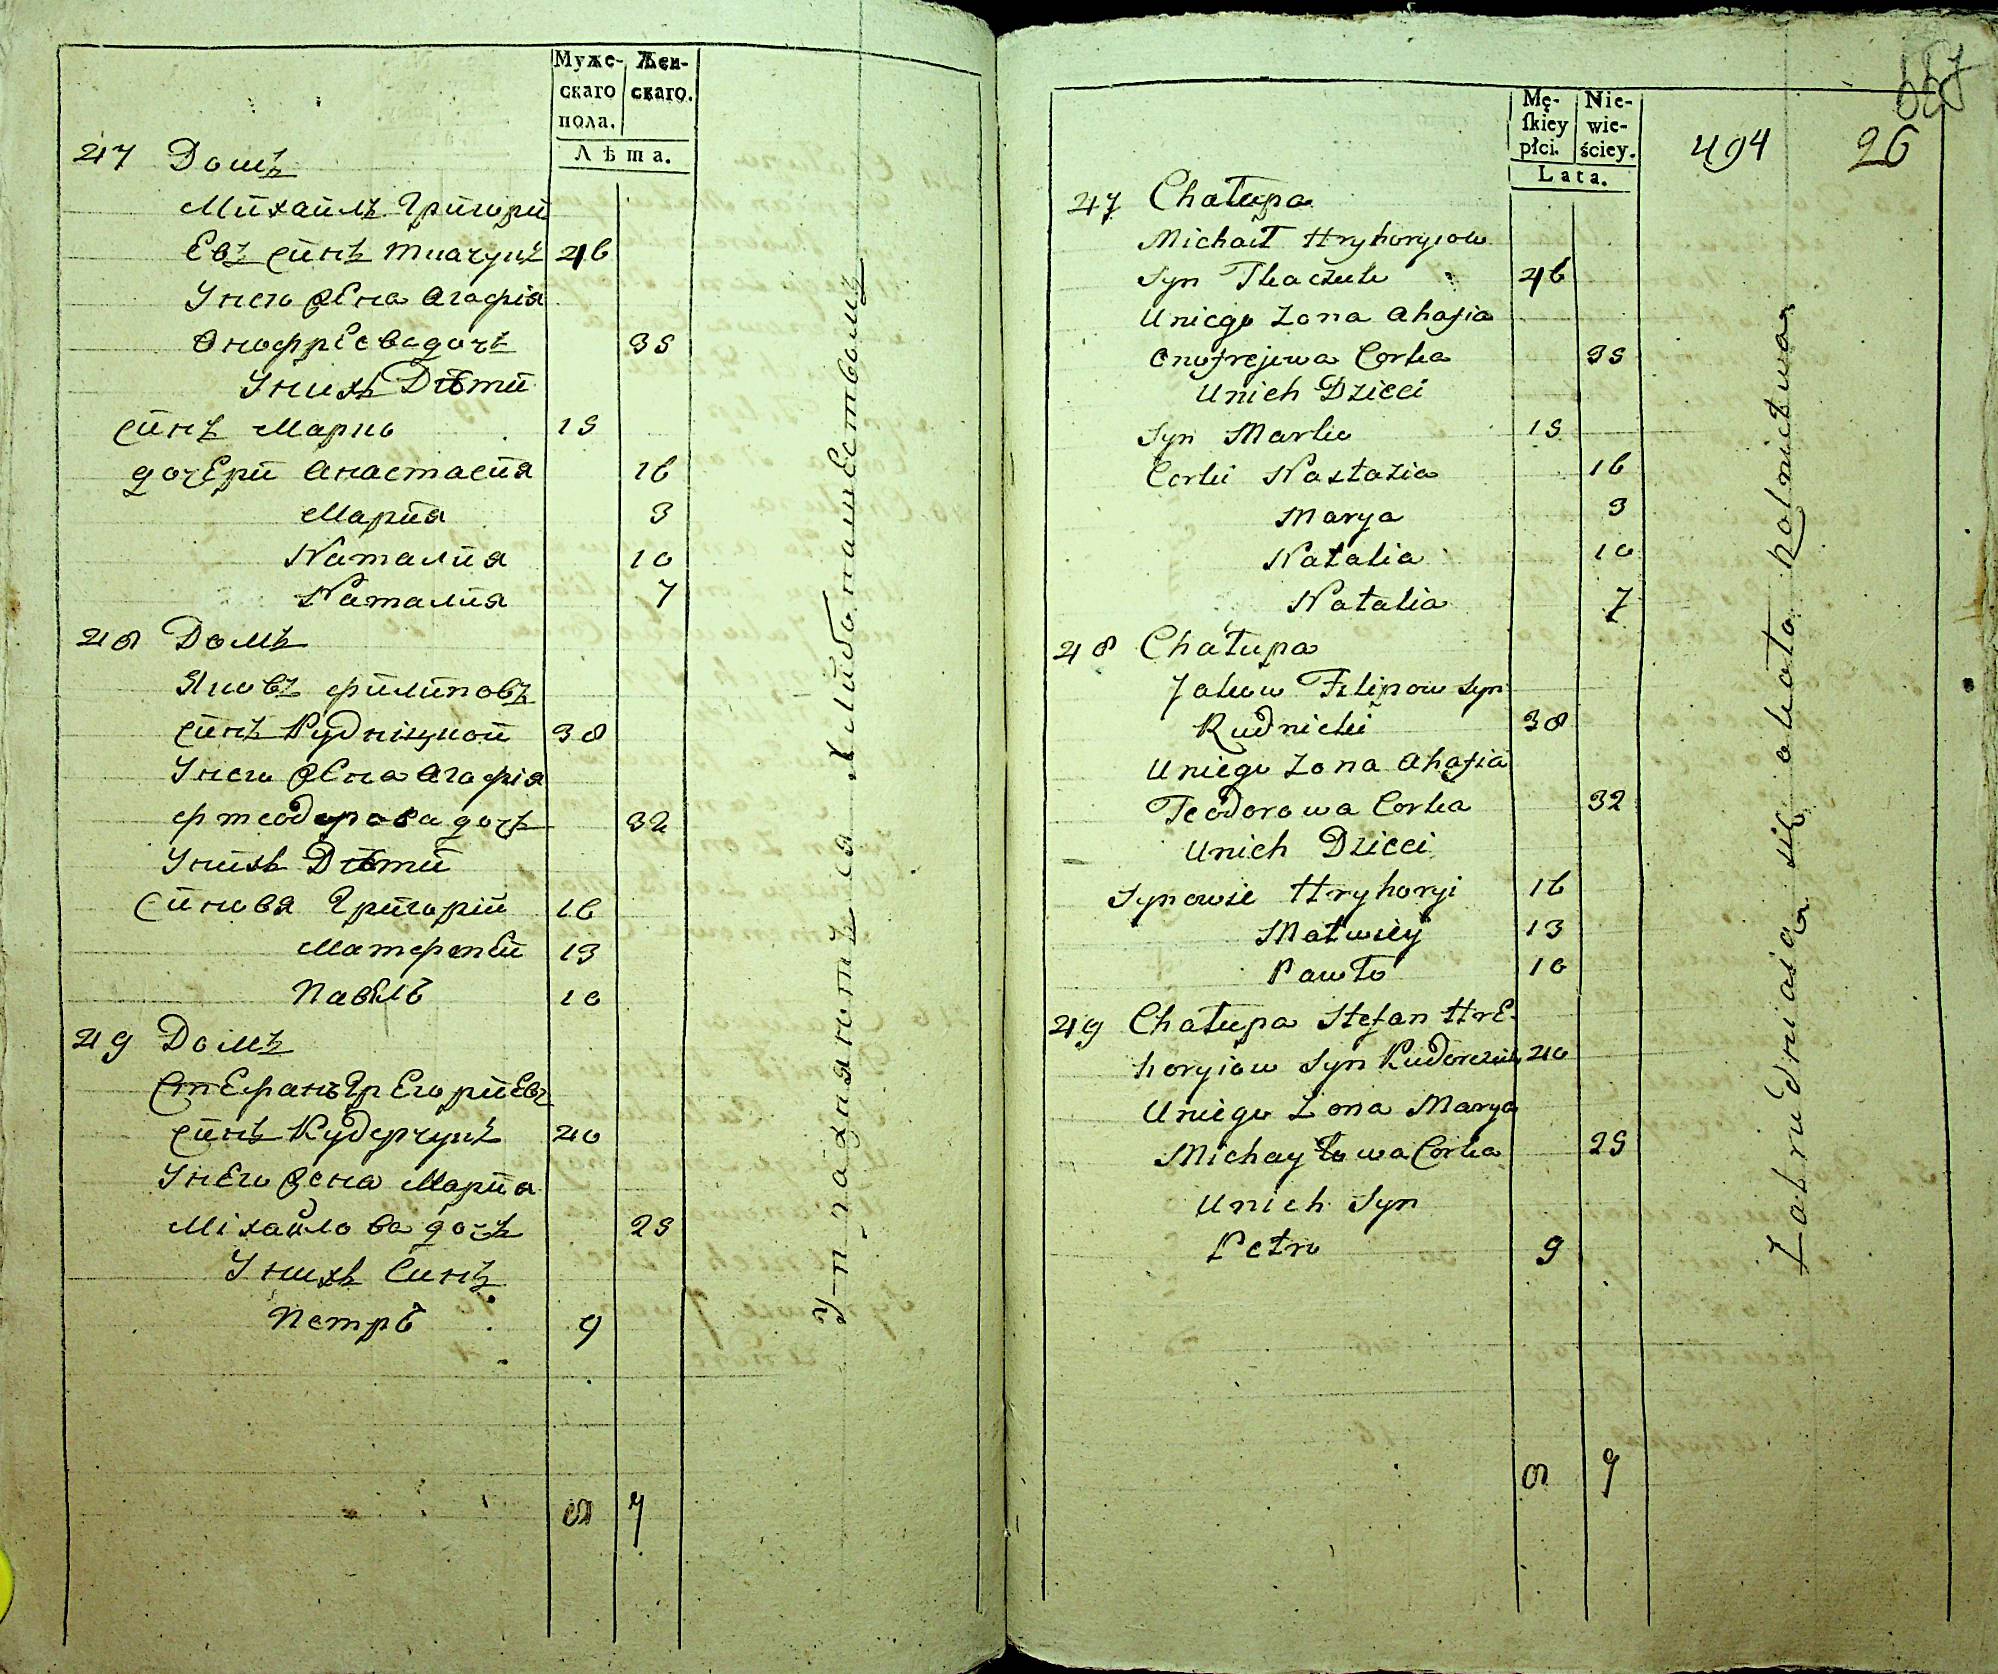 Муже-
скаго
пола.
Жен-
скаго.
Лѣта.
47 Домъ
Михайлъ Григорій
Евъ синъ Ткачукъ 46
Унего жЕна Агафія
Онофріева дочъ 35
Унихъ Дѣти
синъ Марко 15
дочЕри Анастасия 16
Мария 3
Наталия 10
Наталия 7
48 Домъ
Яковъ филиповъ
синъ Рудніцкой 38
Унего жЕна Агафія
фтеодорова дочъ 32
Унихъ Дѣти
синовя Григорій 16
Матфѣй 13
Павѣлъ 10
49 Домъ
СтЕфанъ ГрЕгориЕвъ
синъ Кудерчукъ 40
УнЕго жена Мария
Міхайлова дочъ 25
Унихъ Синъ
Петръ 9
8 7
Упражняютъся Хлибопашествомъ
667
Mę-
skiey
płci.
Nie-
wie-
ściey.
Lata.
494 26
47 Chałupa
Michaił Hryhoryiow
Syn Tkaczuk 46
Uniego Zona Ahafia
Onofrejewa Corka 35
Unich Dzieci
Syn Marko 15
Corki Nastazia 16
Marya 3
Natalia 10
Natalia 7
48 Chałupa
Jakow Filipow Syn
Rudnicki 38
Uniego Zona Ahafia
Teodorowa Corka 32
Unich Dzieci
Synowie Hryhoryi 16
Matwiey 13
Pawło 10
49 Chałupa Stefan HrE-
horyiow Syn Kuderczuk 40
Uniego Zona Marya
Michayłowa Corka 25
Unich Syn
Petro 9
8 7
Zatrudniaią się okoto rolnictwa